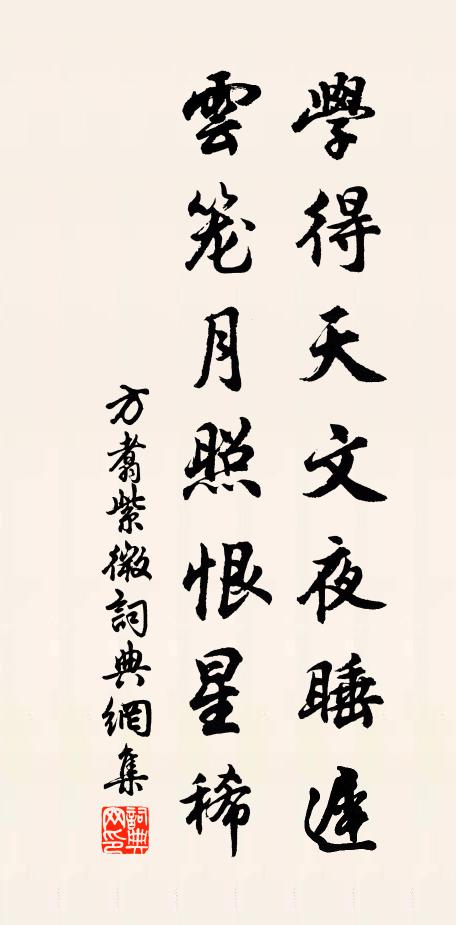 學得天文夜睡遲
雲笼月照恨星稀
方翥紫微詞典網集
詞典网印